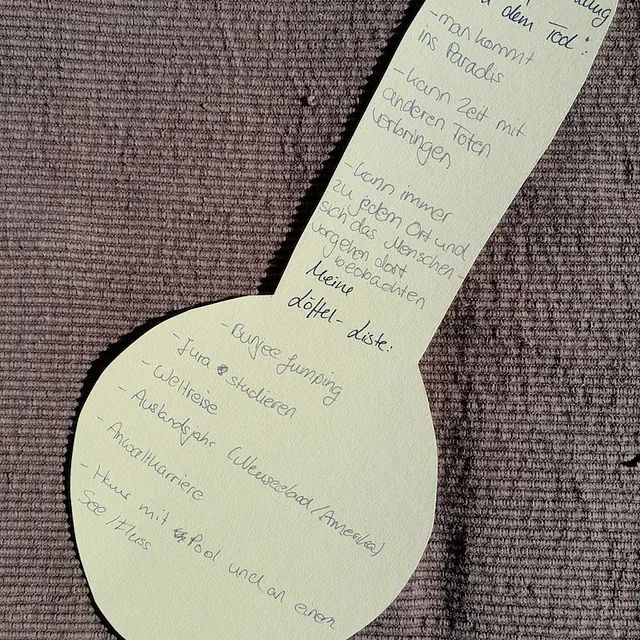 dem Tod:
- man kommt
ins Paradis
- kann Zeit mit
anderen Toten
verbringen
- kann immer
zu jedem Ort und
sich das Menschen-
vorgehen dort
beobachten
Meine
Löffel-Liste:
- Bunjee Jumping
- Jura studieren
- Weltreise
- Auslandsjahr (Neuseeland/Amerika)
- Anwaltkarriere
- Haus mit Pool und an einem
See/Fluss